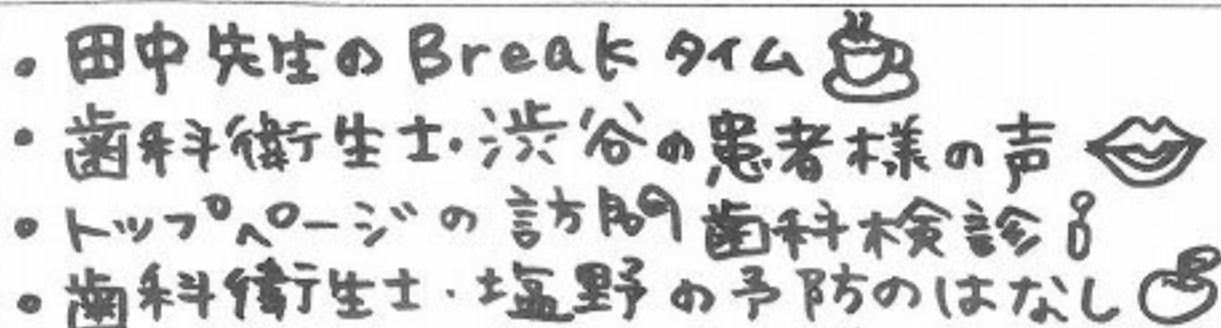 ・田中先生のBreakタイム
・歯科衛生士・渋谷の患者様の声
・トップページの訪問歯科検診
・歯科衛生士・塩野の予防のはなし